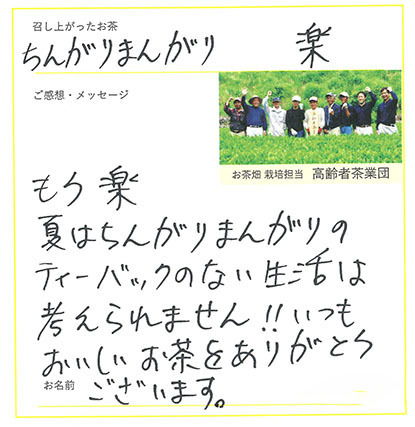 召し上がったお茶
ちんがりまんがり　　楽
ご感想・メッセージ
お茶畑 栽培担当　高齢者茶業団
もう楽
夏はちんがりまんがりの
ティーバックのない生活は
考えられません!!いつも
おいしいお茶をありがとう
ございます。
お名前